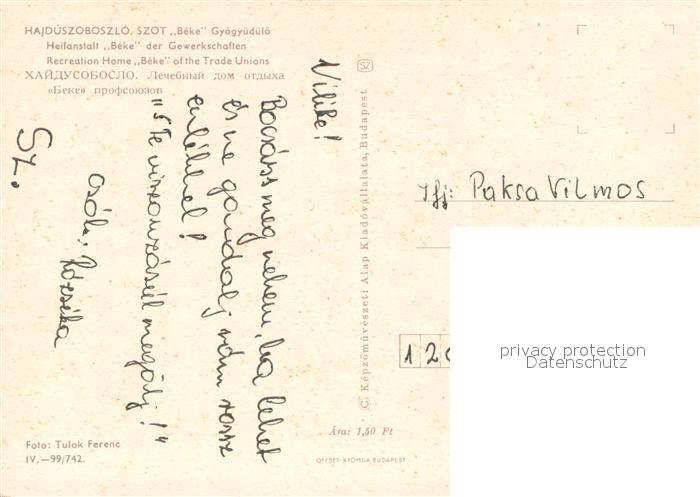 HAJDÚSZOBOSZLÓ. SZOT „Béke" Gyógyüdülő
Heilanstalt „Béke" der Gewerkschaften
Recreation Home „Béke" of the Trade Unions
ХАЙДУСОБОСЛО. Лечебный дом отдыха
«Беке» профсоюзов
Vilike!
Bocsáss meg nekem, ha lehet
és ne gondolj rám rossz
emlékkel!
"S Te viszonzásúl megállj!"
Csók: Rózsika
Sz.
Foto: Tulok Ferenc
IV.—99/742.
SZ
C. Képzőművészeti Alap Kiadóvállalata, Budapest
Ifj: Paksa Vilmos
12
privacy protection
Datenschutz
Ára: 1,50 Ft
OFFSET-NYOMDA BUDAPEST